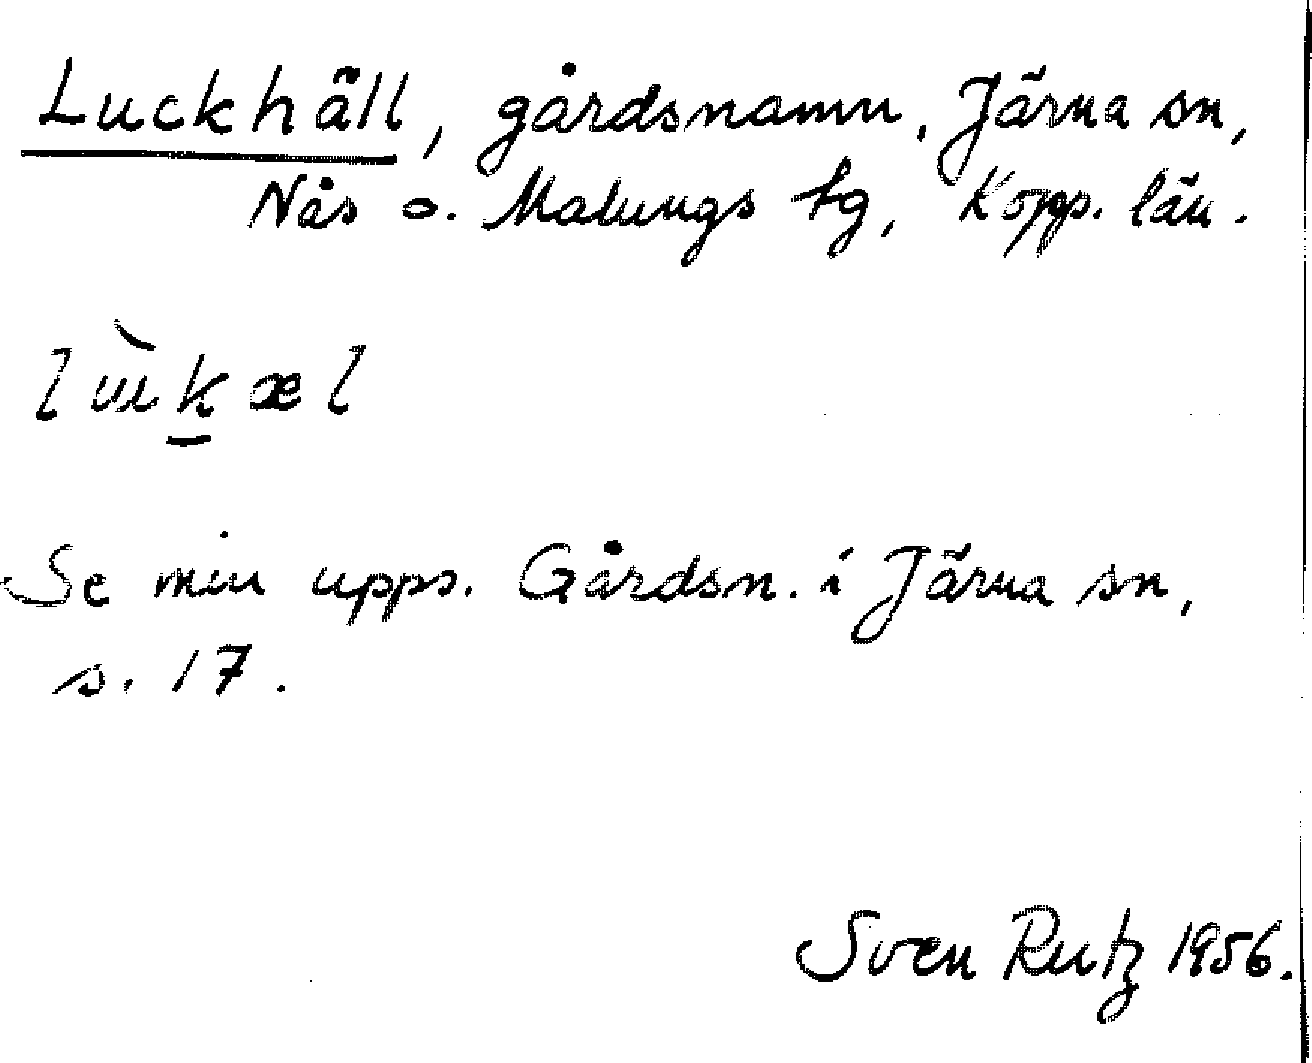 Luckhäll, gårdsnamn, Järna sn,
Nås o. Malungs tg, Kopp. län.
lùkæl
Se min upps. Gårdsn. i Järna sn,
s. 17.
Sven Rutz 1956.